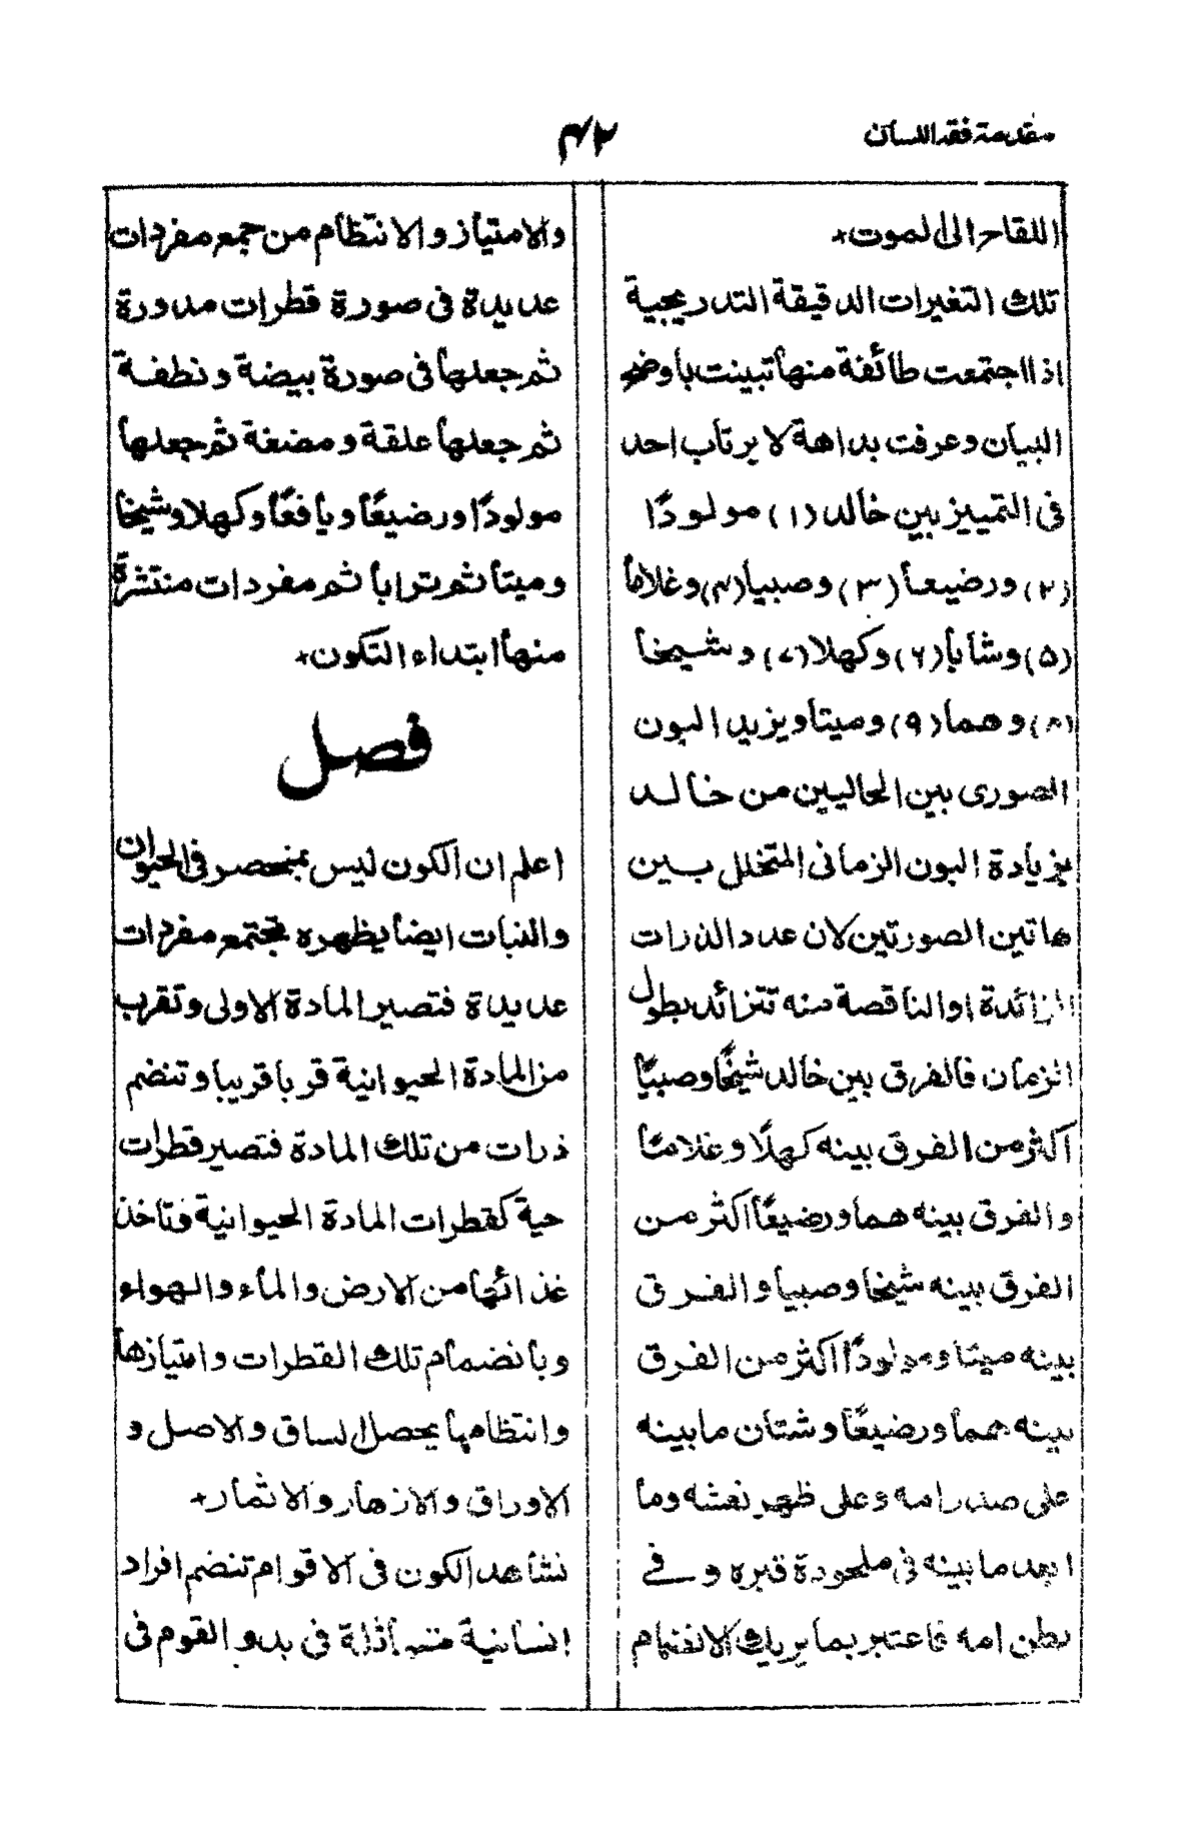 مقدمة فقه اللسان
۴۲
اللقاح الى الموت+
تلك التغيرات الدقيقة التدريجية
اذا اجتمعت طائفة منها تبينت باوضح
البيان وعرفت بداهة لا يرتاب احد
فى التمييز بين خالد (۱) مولودًا
(۲) ورضيعا (۳) وصبيا (۴) وغلاما
(۵) وشابا (۶) وكهلا (۷) وشيخا
(۸) وهما (۹) وميتا ويزيد البون
الصورى بين الحاليين من خالد
بزيادة البون الزمانى المتخلل بين
هاتين الصورتين لان عدد الذرات
الزائدة او الناقصة منه تتزائد بطول
الزمان فالفرق بين خالد شيخًا وصبيًا
اكثر من الفرق بينه كهلًا وغلامًا
والفرق بينه هما ورضيعًا اكثر من
الفرق بينه شيخا وصبيا والفرق
بينه ميتا ومولودًا اكثر من الفرق
بينه هما ورضيعًا وشتان ما بينه
على صدر امه وعلى ظهر نعشه وما
ابعد ما بينه فى ملحودة قبره وفى
بطن امه فاعتبر بما يريك الانضمام
والامتياز والانتظام من جمع مفردات
عديدة فى صورة قطرات مدورة
ثم جعلها فى صورة بيضة ونطفة
ثم جعلها علقة ومضغة ثم جعلها
مولودًا ورضيعًا ويافعًا وكهلا وشيخا
وميتا ثم ترابا ثم مفردات منتشرة
منها ابتداء التكون+
فصل
اعلم ان الكون ليس بمنحصر فى الحيوان
والنبات ايضا يظهره تجتمع مفردات
عديدة فتصير المادة الاولى وتقرب
من المادة الحيوانية قربا قريبا وتنضم
ذرات من تلك المادة فتصير قطرات
حية كقطرات المادة الحيوانية فتاخذ
غذائها من الارض والماء والهواء
وبانضمام تلك القطرات وامتيازها
وانتظامها يحصل الساق والاصل و
الاوراق والازهار والاثمار+
نشاهد الكون فى الاقوام تنضم افراد
انسانية فى بدو القوم فى